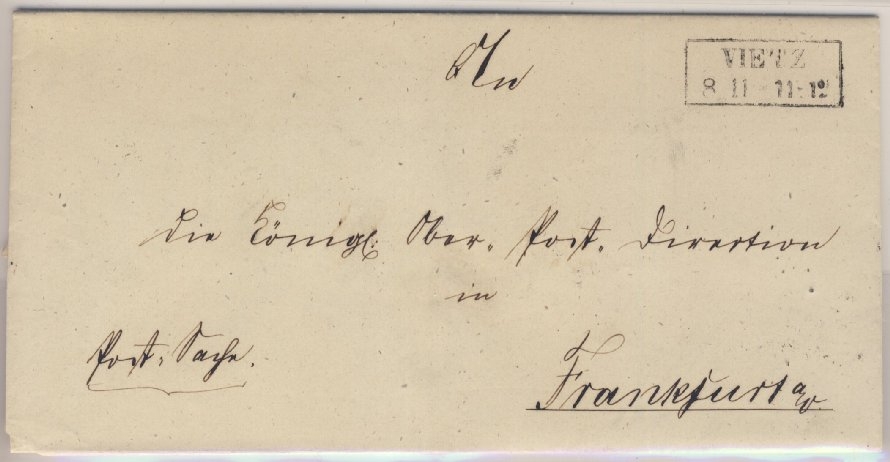 VIETZ
8 11 * 11-12
An
die Königl. Ober-Post-Direction
in
Post-Sache.
Frankfurt a/O.